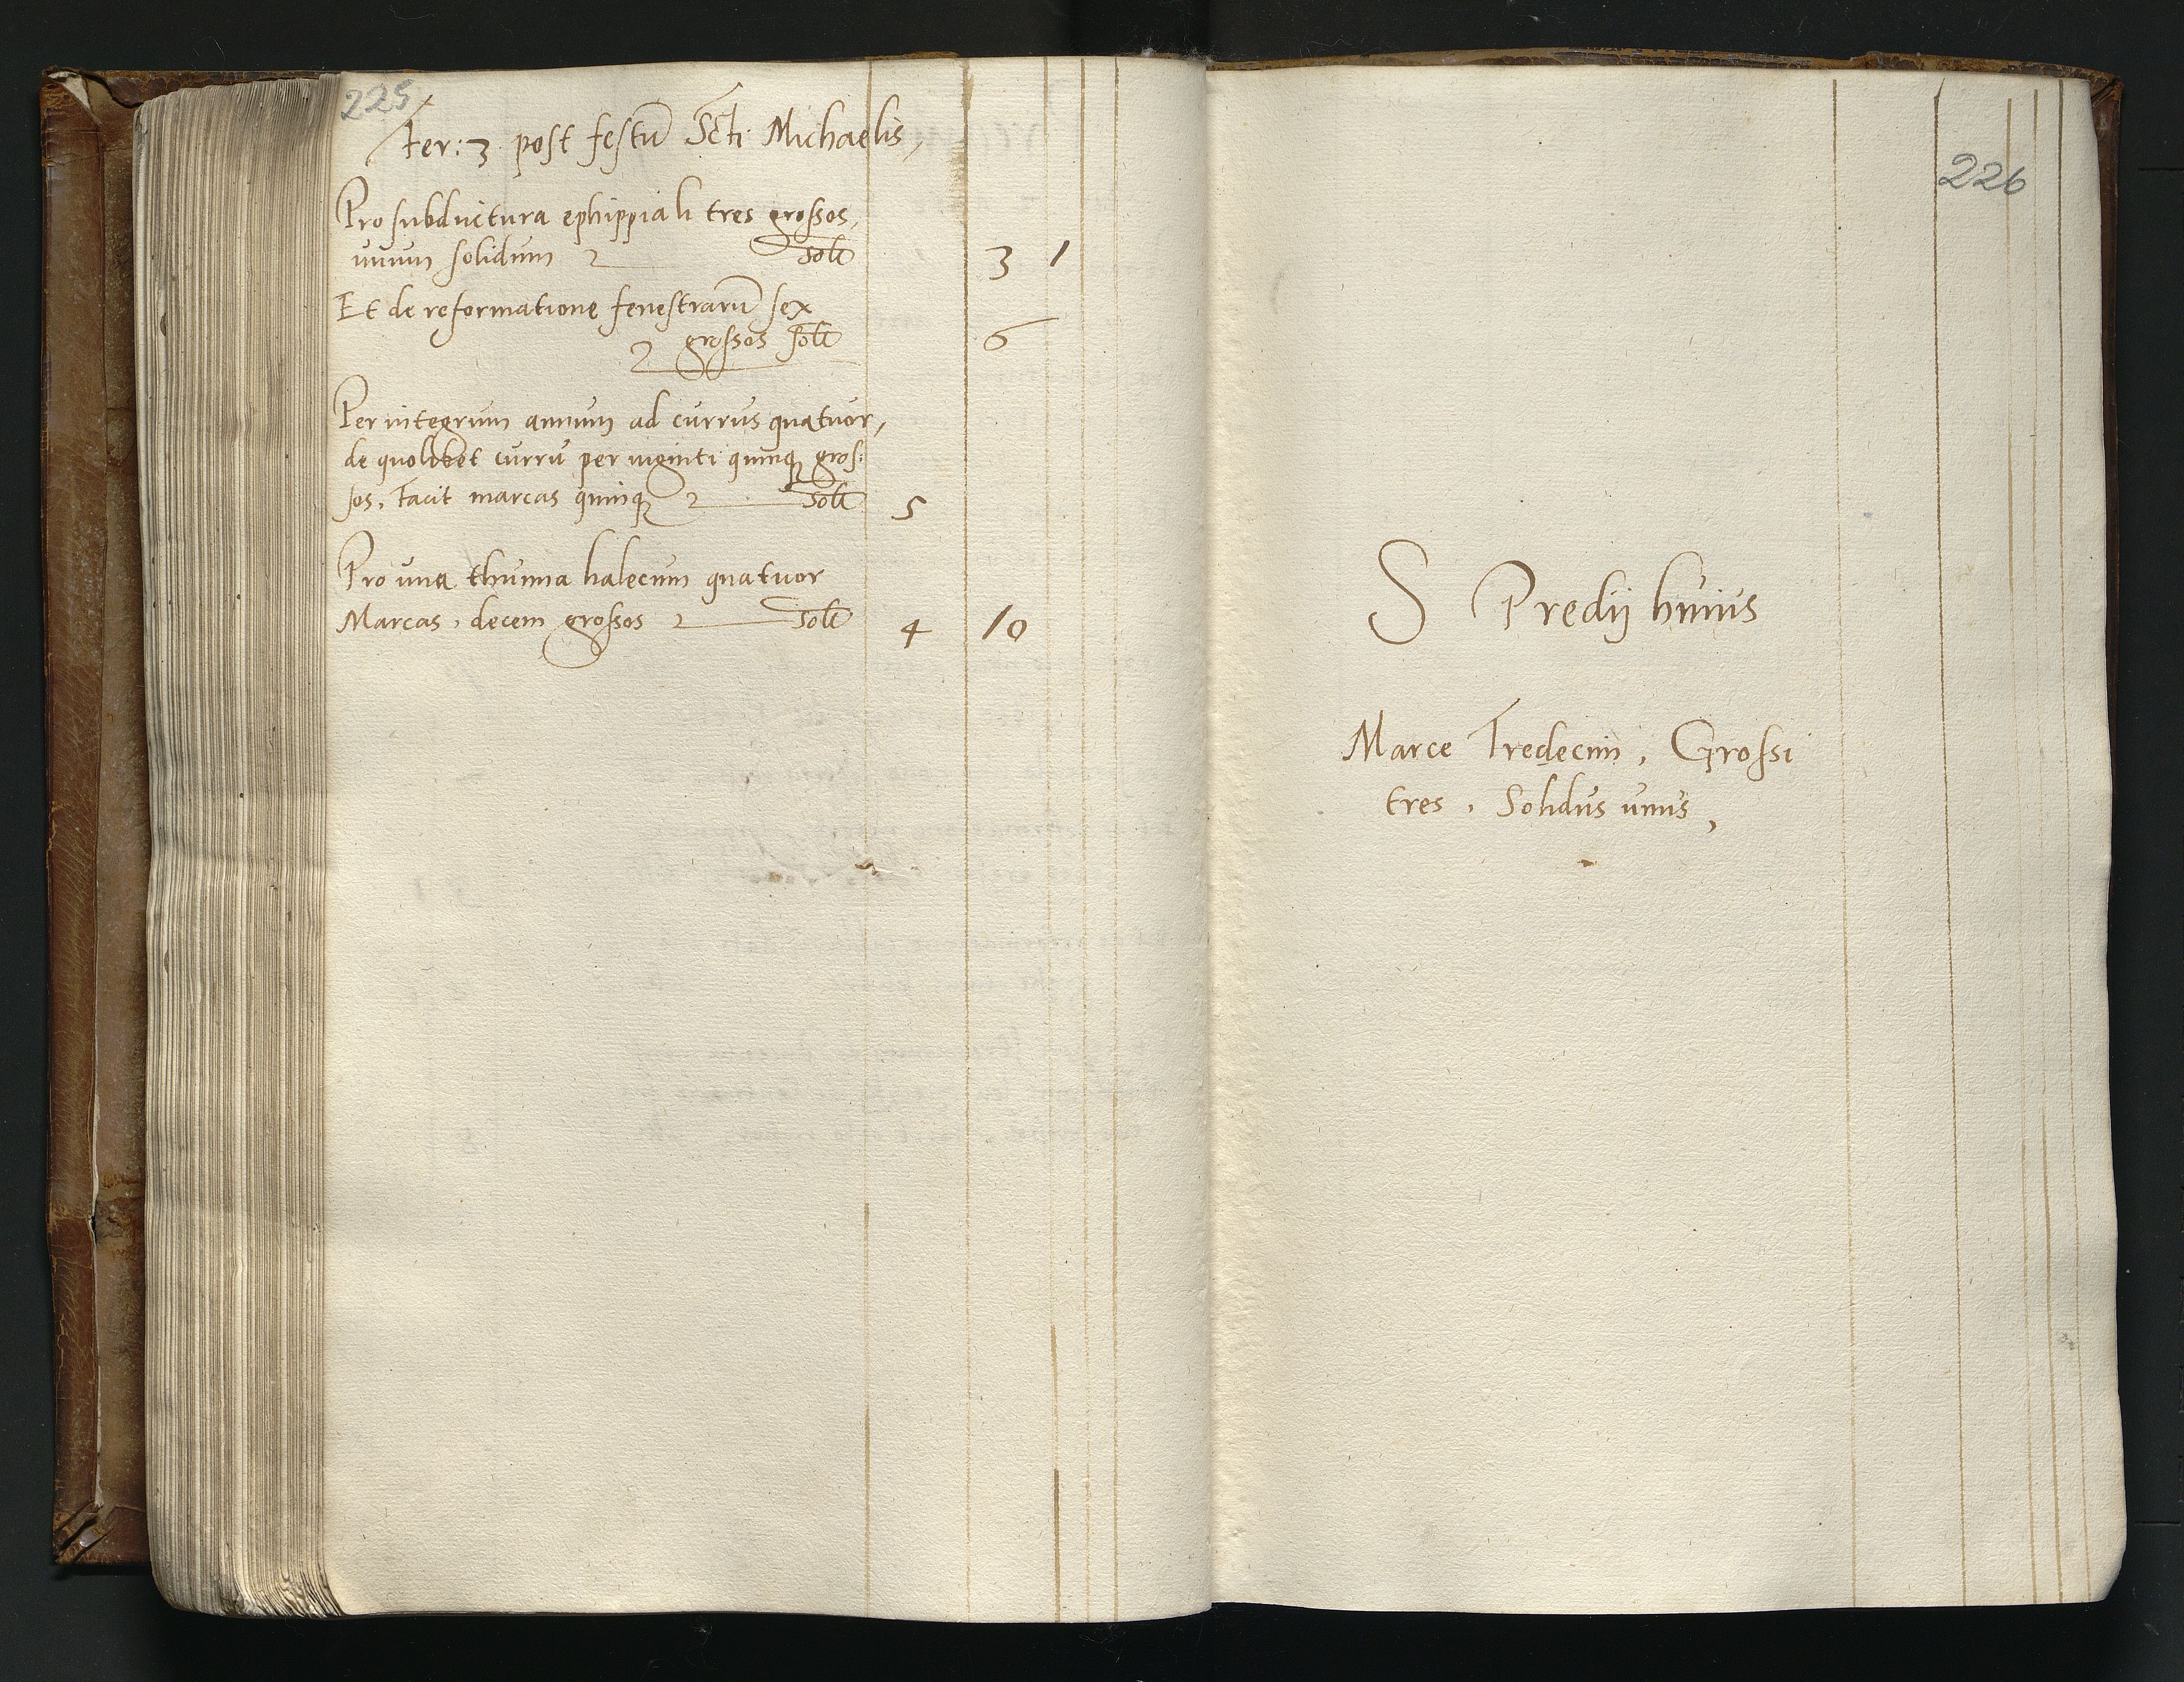 225
fer: 3 post festū Scti Michaelis,
Pro subductura ephippiali tres grossos,
unum solidum solt 3 1
Et de reformatione fenestrarū sex
grossos solt 6
Per integrum annum ad currus quatuor,
de quolibet currū per viginti quinq gros:
sos, facit marcas quinq solt 5
Pro una thunna halecum quatuor
Marcas, decem grossos solt 4 10
226
S Predij huius
Marce Tredecim, Grossi
tres, Solidus unus,